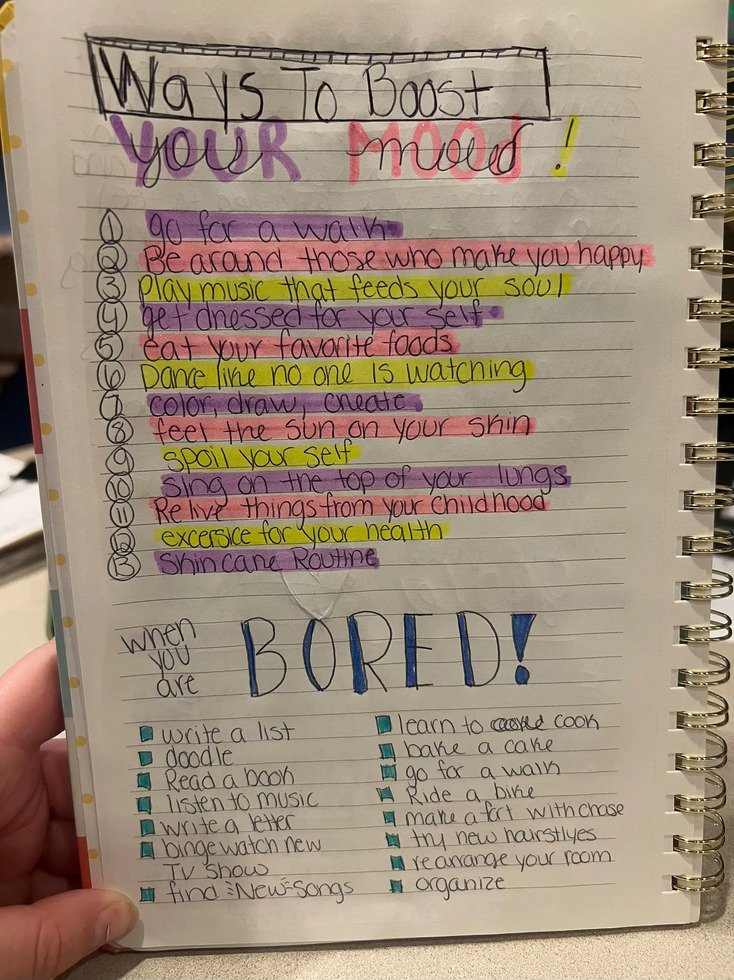 Ways To Boost
your mood!
1 go for a walk
2 Be around those who make you happy
3 Play music that feeds your soul
4 get dressed for your self
5 eat your favorite foods
6 Dance like no one is watching
7 color, draw, create
8 feel the sun on your skin
9 spoil your self
10 sing on the top of your lungs
11 Relive things from your childhood
12 excersice for your health
13 skincare Routine
when you are BORED!
write a list
doodle
Read a book
listen to music
write a letter
binge watch new
TV Show
find New songs
learn to cook
bake a cake
go for a walk
Ride a bike
make a fort with chase
try new hairstlyes
rearrange your room
organize